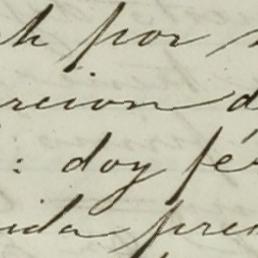 por
rcion d
: doy fé
ida pre